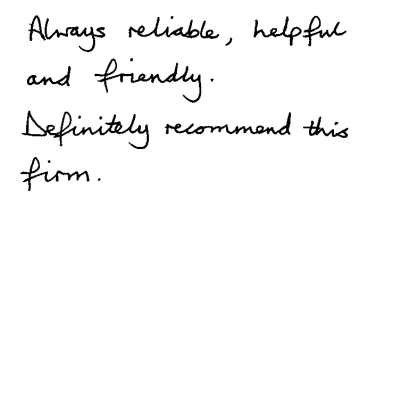 Always reliable, helpful
and friendly.
Definitely recommend this
firm.